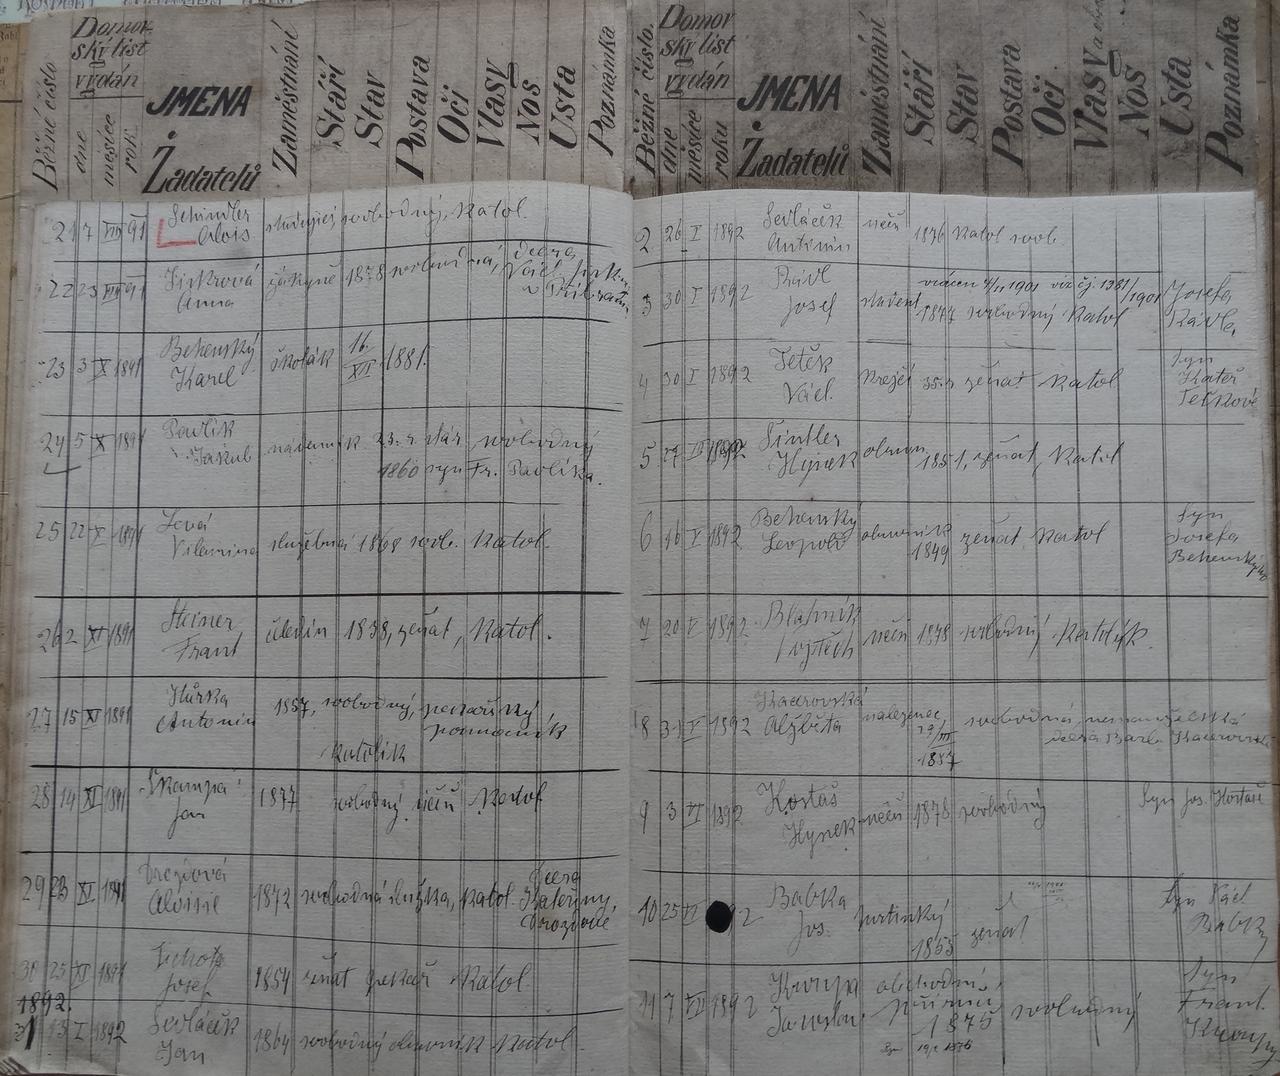 Běžné číslo
Domov
ský list
vydán
dne
měsíce
rok
JMENA
Žadatelů
Zaměstnání
Stáří
Stav
Postava
Oči
Vlasy
Nos
Usta
Poznámka
21 7 VIII 91 Schindler
Alois studující svobodný, Katol.
22 23 VIII 91
Anna žákyně 1878 svobodná, dcera
Václ.
v Příbrami
23 3 X 1891 Behenský
Karel školák 16. XII 1881.
24 5 X 1891 Pavlík
Jakub nádenník 23. r. stár, svobodný
1860 syn Fr. Pavlíka.
25 22 X 1891 Levá
Vilemina služebná 1868 svob. Katol.
26 2 XI 1891 Steiner
Frant čeledín 1838, ženat, Katol.
27 15 XI 1891 Hůrka
Antonín 1857, svobodný, pekařský
pomocník
Katolík
28 14 XI 1891 Škampa
Jan 1877 svobodný učeň Katol
29 23 XI 1891 Drozdová
Aloisie 1872 svobodná služka, Katol. Dcera
Kateřiny
Drozdové
30 25 XI 1891
Josef 1854 ženat pekař Katol.
1892.
31 13 I 1892 Sedláček
Jan 1864 svobodný obuvník Katol.
Běžné číslo.
Domov
ský list
vydán
dne
měsíce
roku
JMENA
Žadatelů
Zaměstnání
Stáří
Stav
Postava
Oči
Vlasy
Nos
Usta
Poznámka
2 26 I 1892 Sedláček
Antonín učeň 1876 Katol svob.
3 30 I 1892 Rávl
Josef student vrácen 4/11 1901 viz čj. 1981/1901
1877 svobodný Katol Josefa
Rávla,
4 30 I 1892 Teťěk
Václ. Krejčí 35.r ženat Katol Syn
Kateř
Teťkové
5 27 1892 Fintler
Hynek obuvn 1851, ženat, Katol
6 16 V 1892 Behenský
Leopold obuvník
1849 ženat Katol Syn
Josefa
Behenského
7 20 V 1892 Blahník
Vojtěch učeň 1878 svobodný Katolík.
8 31 V 1892
Alžběta nalezenec, 29/III
1857 svobodná, nemanželská
dcera Barb.
9 3 VI 1892 Hostaš
Hynek učeň 1878 svobodný Syn Jos. Hostaše
10 25 92 Babka
Jos. 1855 ženat Syn Václ
Babky
11 7 VII 1892 Kroupa
Jaroslav obchodní,
1875 svobodný Syn
Frant.
Kroupy
19/2 1876